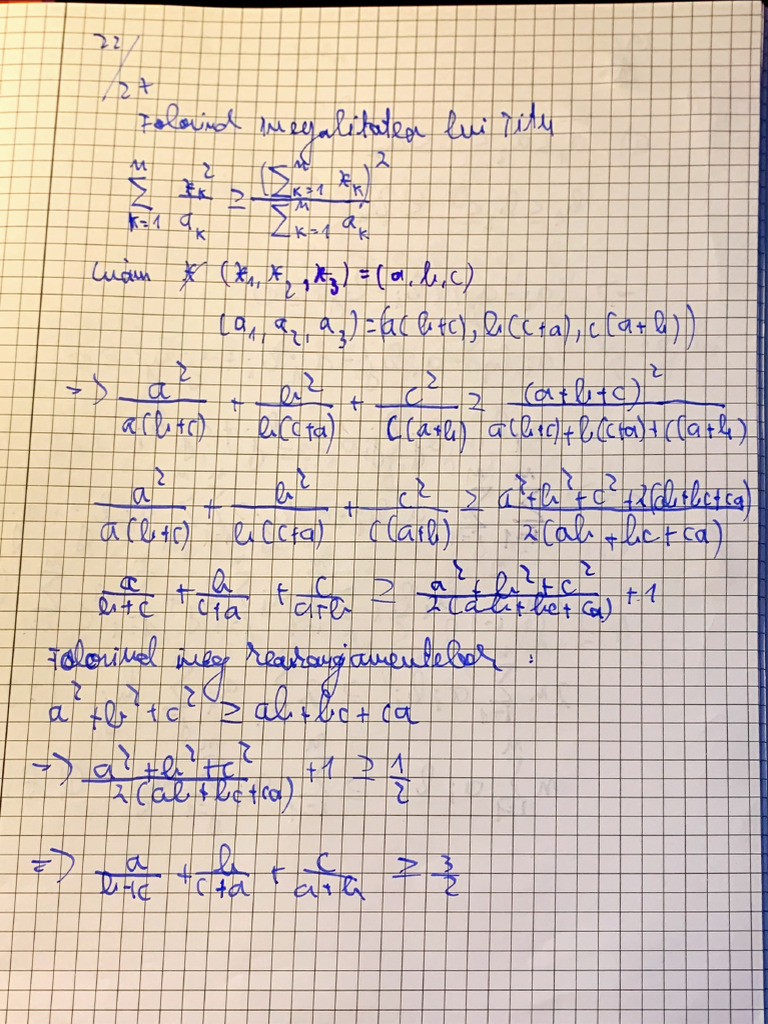 22/27
Folosind inegalitatea lui Titu
\sum_{k=1}^{n} \frac{x_k^2}{a_k} ≥ \frac{(\sum_{k=1}^{n} x_k)^2}{\sum_{k=1}^{n} a_k}
Luăm (x_1, x_2, x_3) = (a, b, c)
(a_1, a_2, a_3) = (a(b+c), b(c+a), c(a+b))
=> \frac{a^2}{a(b+c)} + \frac{b^2}{b(c+a)} + \frac{c^2}{c(a+b)} ≥ \frac{(a+b+c)^2}{a(b+c)+b(c+a)+c(a+b)}
\frac{a^2}{a(b+c)} + \frac{b^2}{b(c+a)} + \frac{c^2}{c(a+b)} ≥ \frac{a^2+b^2+c^2+2(ab+bc+ca)}{2(ab+bc+ca)}
\frac{a}{b+c} + \frac{b}{c+a} + \frac{c}{a+b} ≥ \frac{a^2+b^2+c^2}{2(ab+bc+ca)} + 1
Folosind ineg rearanjamentelor :
a^2+b^2+c^2 ≥ ab+bc+ca
=> \frac{a^2+b^2+c^2}{2(ab+bc+ca)} + 1 ≥ \frac{1}{2}
=> \frac{a}{b+c} + \frac{b}{c+a} + \frac{c}{a+b} ≥ \frac{3}{2}